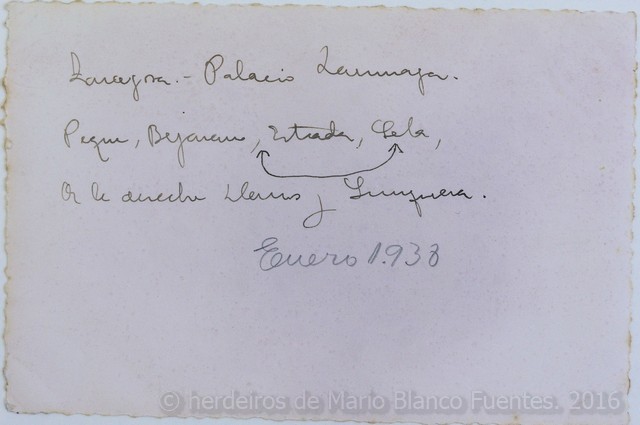 Zaragoza.- Palacio Larrinaga.
Peque, Bejarano, Estrada, Lela,
A la derecha Llanos y Junquera.
Enero 1.938
© herdeiros de Mario Blanco Fuentes. 2016